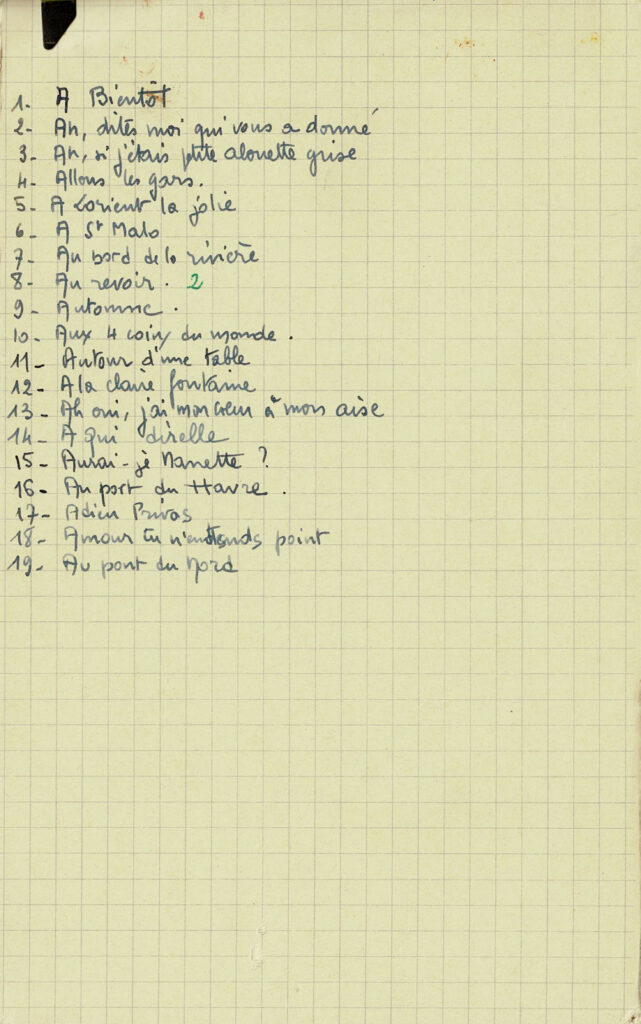 1- A Bientôt
2- Ah, dites moi qui vous a donné
3- Ah, si j'étais ptite alouette grise
4- Allons les gars.
5- A Lorient la jolie
6- A St Malo
7- Au bord de la rivière
8- Au revoir. 2
9- Automne.
10- Aux 4 coins du monde.
11- Autour d'une table
12- A la claire fontaine
13- Ah oui, j'ai mon coeur à mon aise
14- A qui direlle
15- Aurai-je Nanette ?
16- Au port du Havre.
17- Adieu Privas
18- Amour tu n'entends point
19- Au pont du Nord